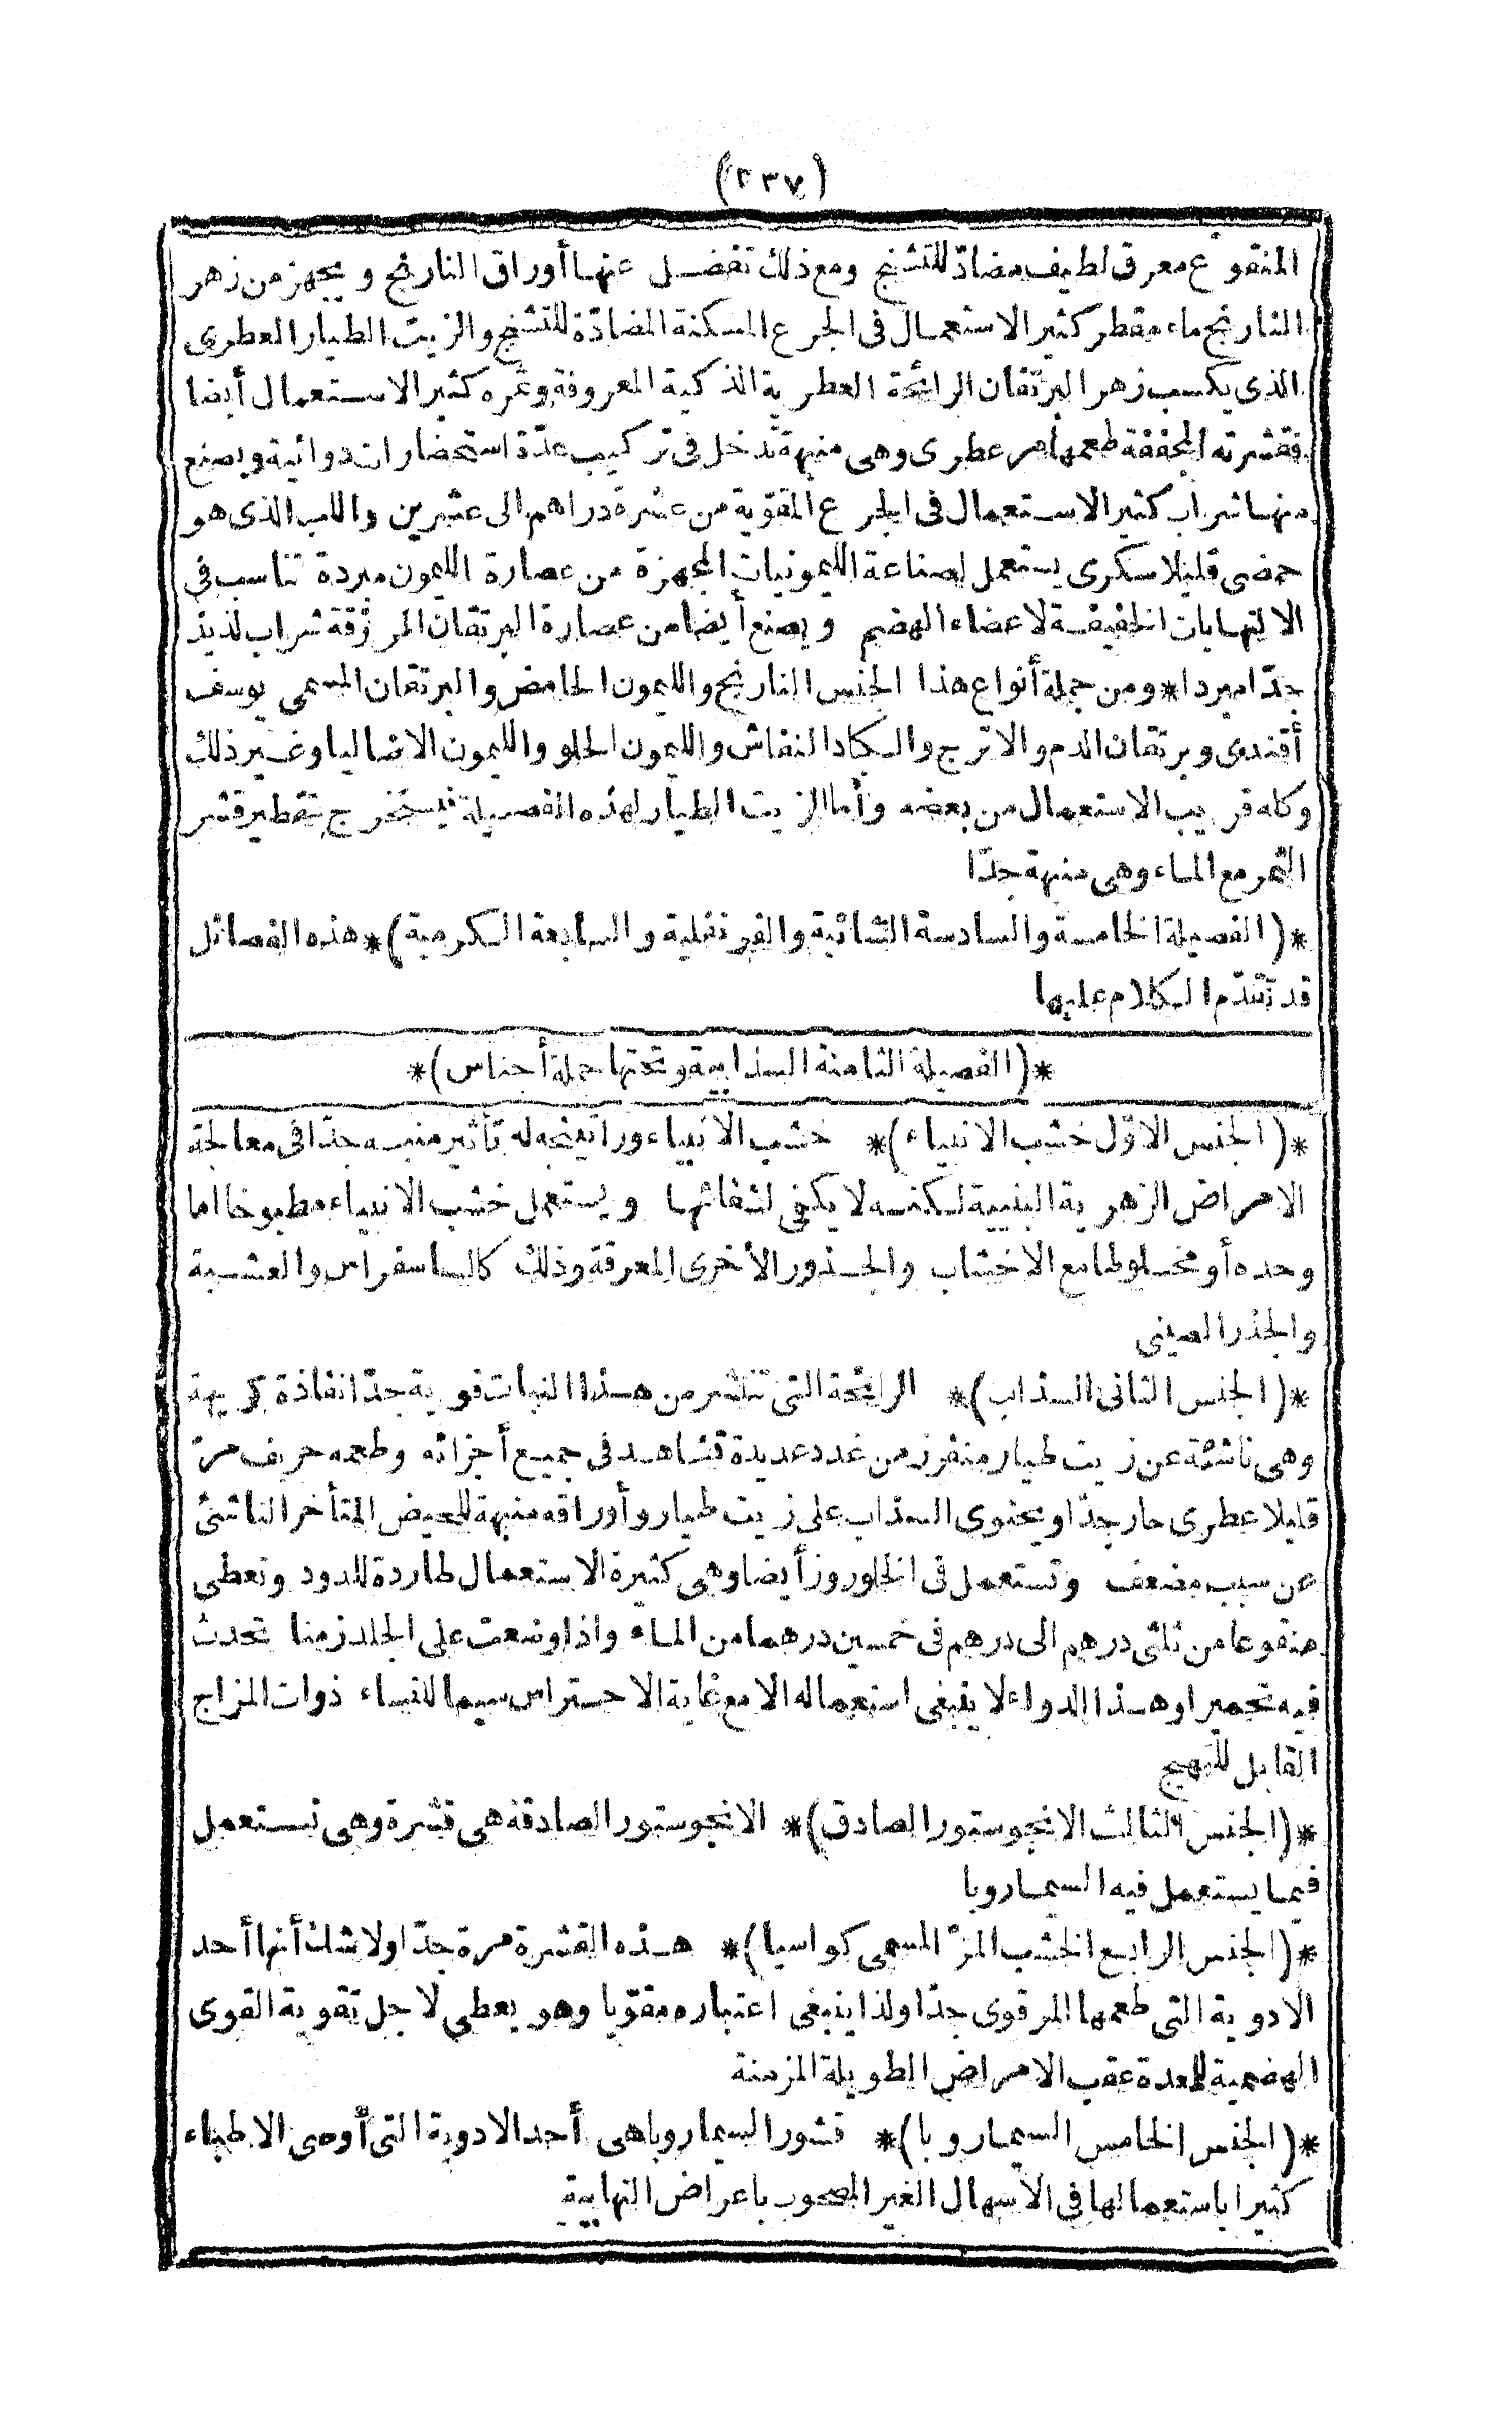 (٢٣٧)
المنقوع معرق لطيف مضادّ للتشنج ومع ذلك تفضل عنها أوراق النارنج ويجهز من زهر
النارنج ماء مقطر كثير الاستعمال فى الجرع المسكنة المضادّة للتشنج والزيت الطيار العطرى
الذى يكسب زهر البرتقان الرائحة العطرية الذكية المعروفة وثمره كثير الاستعمال أيضا
فقشرته المجففة طعمها مر عطرى وهى منبهة تدخل فى تركيب عدّة استحضارات دوائية ويصنع
منها شراب كثير الاستعمال فى الجرع المقوّية من عشرة دراهم الى عشرين واللب الذى هو
حمضى قليلا سكرى يستعمل لصناعة الليمونيات المجهزة من عصارة الليمون مبردة تناسب فى
الالتهابات الخفيفة لاعضاء الهضم ويصنع أيضا من عصارة البرتقان المرزقة شراب لذيذ
جدّا مبردا * ومن جملة أنواع هذا الجنس النارنج والليمون الحامض والبرتقان المسمى يوسف
أفندى وبرتقان الدم والاترج والكباد النفاش والليمون الحلو والليمون الاضاليا وغير ذلك
وكله قريب الاستعمال من بعضه وأما الزيت الطيار لهذه الفصيلة فيستخرج بتقطير قشر
الثمر مع الماء وهى منبهة جدّا
*(الفصيلة الخامسة والسادسة الشائية والقرنفلية والسابعة الكرمية)* هذه الفصائل
قد تقدّم الكلام عليها
*(الفصيلة الثامنة السذابية وتحتها جملة أجناس)*
*(الجنس الاوّل خشب الانبياء)* خشب الانبياء وراتينجه له تأثير منبه جدّا فى معالجة
الامراض الزهرية البنيية لكنه لا يكفى لشفائها ويستعمل خشب الانبياء مطبوخا اما
وحده أو مخلوطا مع الاخشاب والجذور الأخرى المعرقة وذلك كالساسفراس والعشبة
والجذر الصينى
*(الجنس الثانى السذاب)* الرائحة التى تنتشر من هذا النبات قوية جدّا نفاذة كريهة
وهى ناشئة عن زيت طيار منفرز من غدد عديدة تشاهد فى جميع أجزائه وطعمه حريف مرّ
قليلا عطرى حار جدّا ويحتوى السذاب على زيت طيار وأوراقه منبهة للحيض المتأخر الناشئ
عن سبب مضعف وتستعمل فى الخلوروز أيضا وهى كثيرة الاستعمال طاردة للدود وتعطى
منقوعا من ثلثى درهم الى درهم فى خمسين درهما من الماء واذا وضعت على الجلد زمنا تحدث
فيه تحميرا وهذا الدواء لا ينبغى استعماله الا مع غاية الاحتراس سيما للنساء ذوات المزاج
القابل للتهيج
*(الجنس الثالث الانجوستور الصادق)* الانجوستور الصادقة هى قشرة وهى تستعمل
فيما يستعمل فيه السيماروبا
*(الجنس الرابع الخشب المرّ المسمى كواسيا)* هذه القشرة مرة جدّا ولا شك أنها أحد
الادوية التى طعمها المر قوى جدّا ولذا ينبغى اعتباره مقوّيا وهو يعطى لاجل تقوية القوى
الهضمية للمعدة عقب الامراض الطويلة المزمنة
*(الجنس الخامس السيماروبا)* قشور السيماروبا هى أحد الادوية التى أوصى الاطباء
كثيرا باستعمالها فى الاسهال الغير المصحوب باعراض التهابية